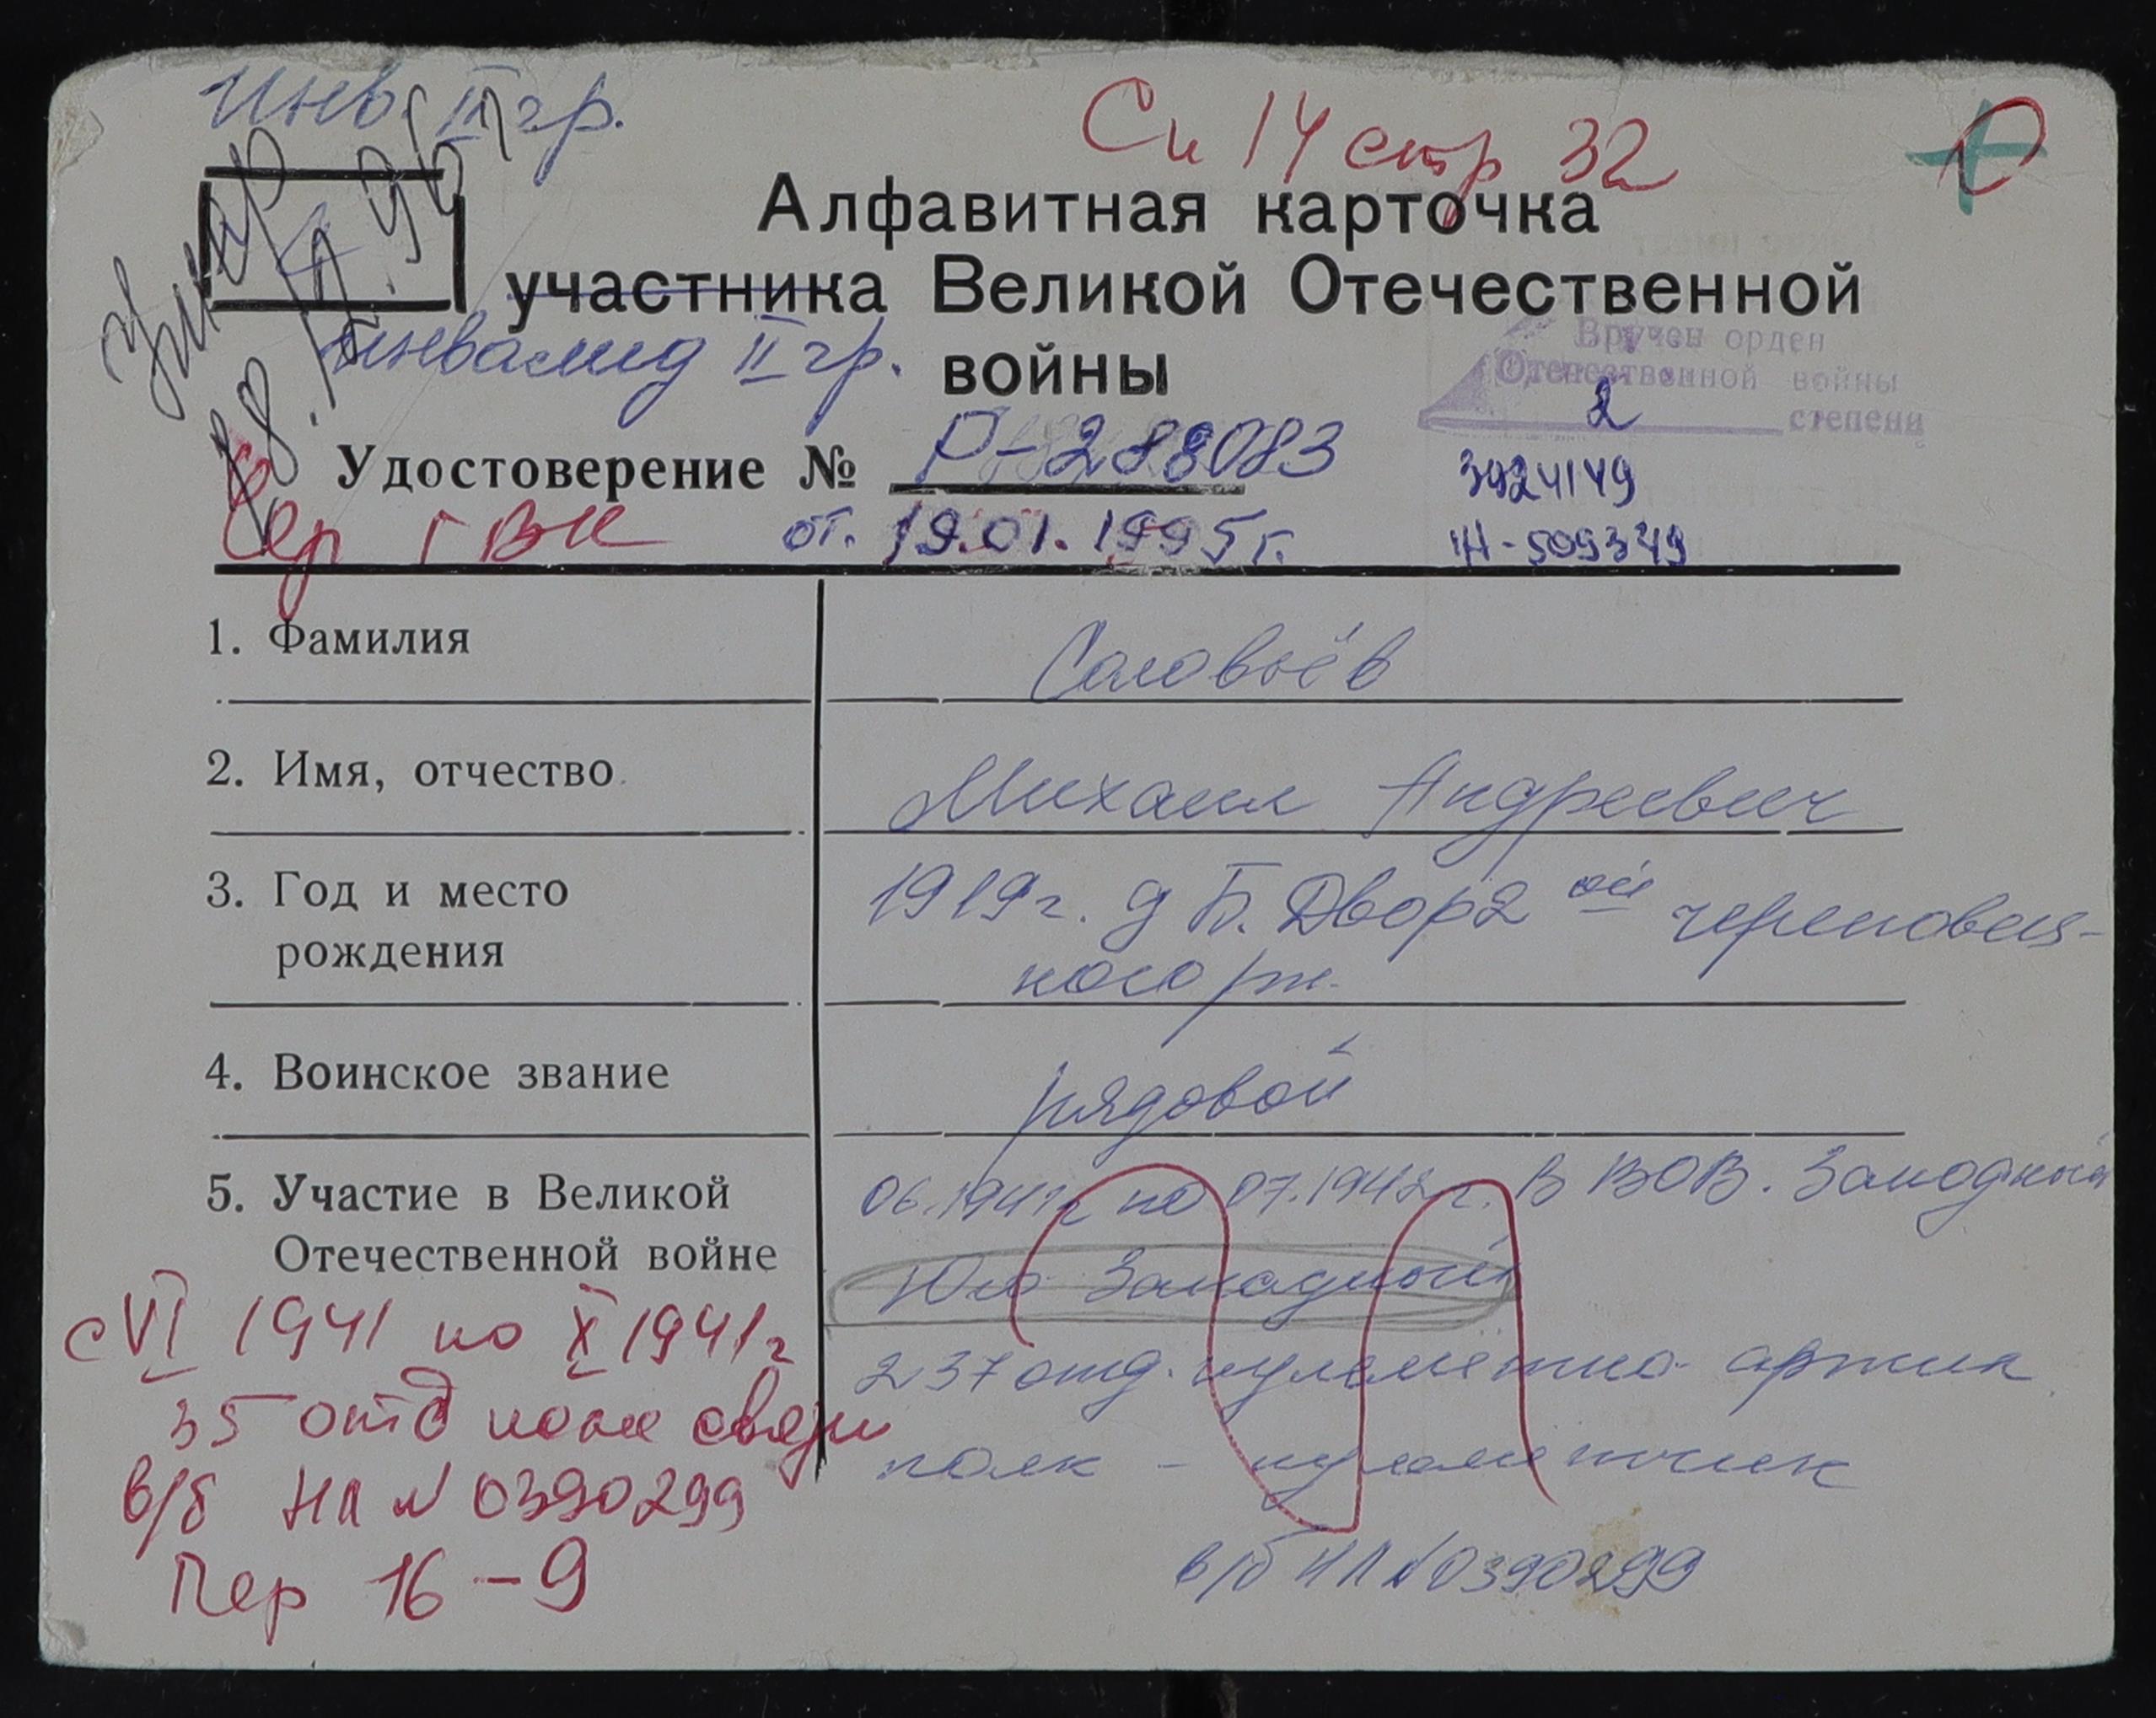 Инв. III гр.
Сп 14 стр 32
Алфавитная карточка
участника Великой Отечественной
инвалид II гр. войны
Вручен орден
Отечественной войны
2 степени
Удостоверение № Р-288083
3924149
Сер ГВК от. 19.01.1995 г.
1. Фамилия Соловьёв
2. Имя, отчество Михаил Андреевич
3. Год и место 1919г. д Б. Двор 2ой Череповец-
рождения
4. Воинское звание рядовой
5. Участие в Великой 06.1941г по 07.1942 г. В ВОВ. Западный
Отечественной войне Юго Западный
с VI 1941 по X 1941г
237 отд. пулемётно артил
35 отд полк связи
полк - пулемётчик
в/б НЛ N 0390299
в/б НЛ N 0390299
Пер 16-9